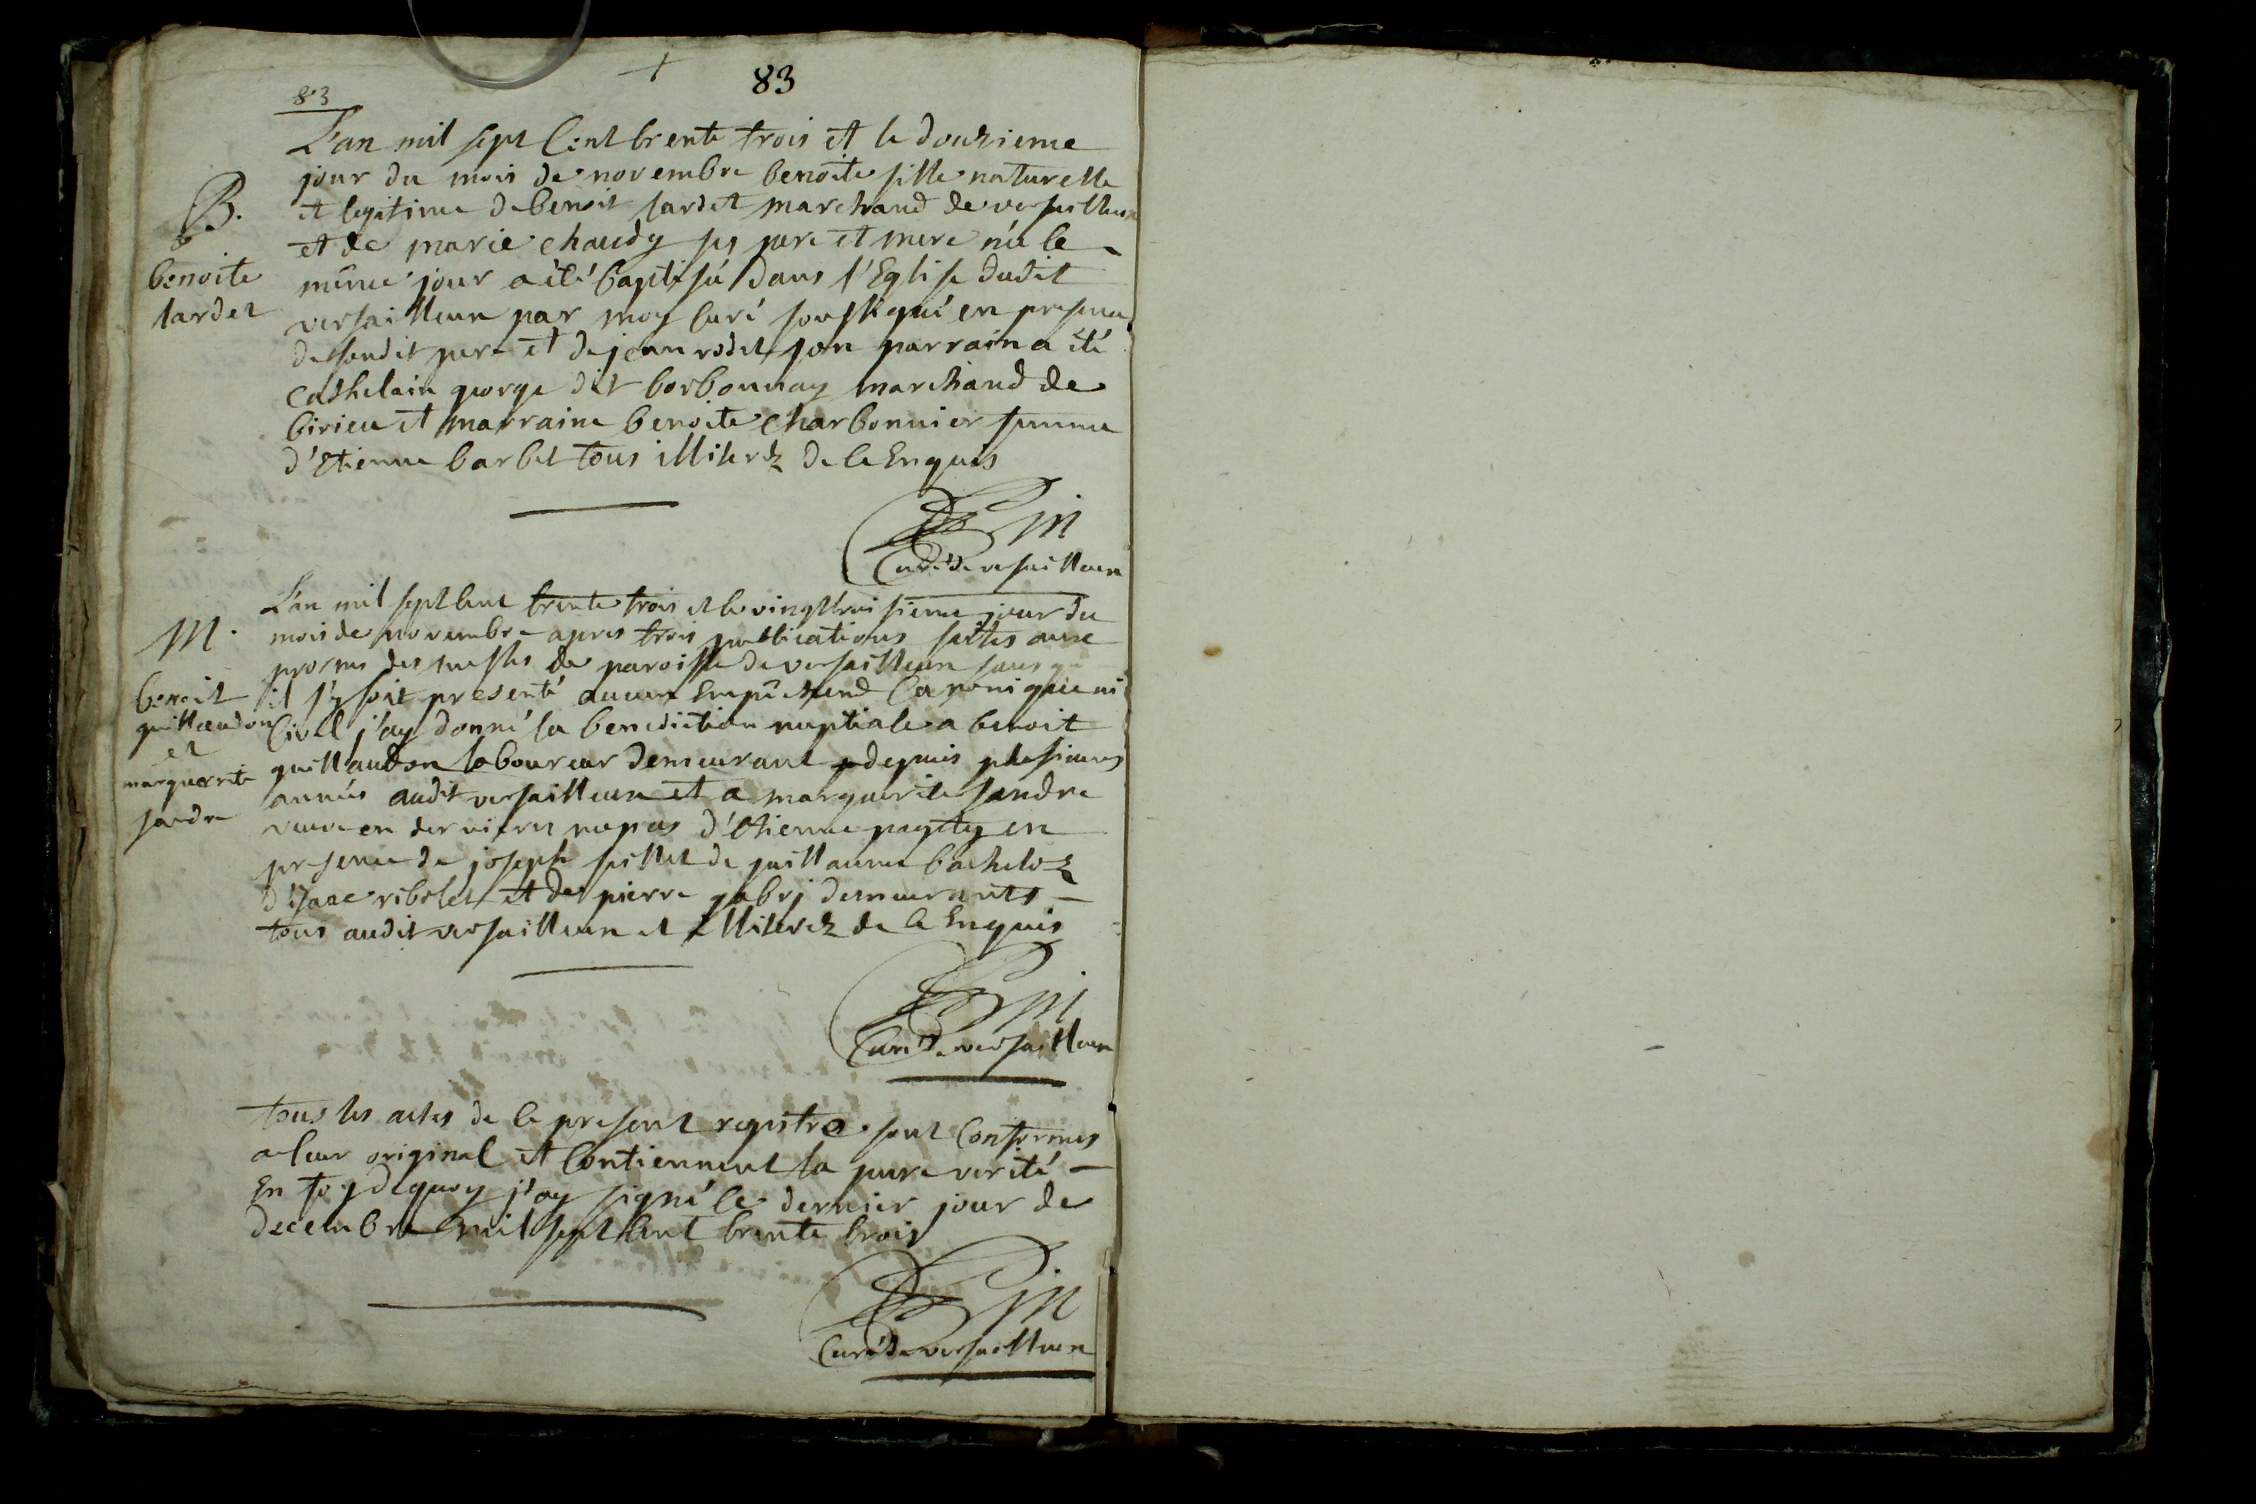 83
83
L'an mil sept Cent trente trois et le douzieme
jour du mois de novembre benoite fille naturelle
et legitime de benoit lardet marchand de versailleux
et de marie chaudy ses pere et mere née le
même jour a été baptisée dans l'Eglise dudit
versailleux par moy Curé soussigné en presence
de sondit pere et de jean rodet son parrain a été
Cathelain george dit borbonnay marchand de
birieu et marraine benoite charbonnier femme
d'Etienne barbet tous illiterez de ce Enquis
B.
benoite
lardet
Curé de versailleux
L'an mil sept Cent trente trois et le vingt troisieme jour du
mois de novembre apres trois publications faites aux
prosnes des messes de paroisse de versailleux sans que
il s'y soit presenté aucun Empêchement Canonique ni
Civil j'ay donné la benediction nuptiale a benoit
guillaudon laboureur demeurant depuis plusieurs
années audit versailleux et a marguerite sandre
veuve en dernieres nopces d'Etienne en
presence de joseph fillet de guillaume bacheloz
d'isaac ribolet et de pierre gabrj demeurants
tous audit versailleux et illiterez de ce Enquis
M.
benoit
guillaudon
et
marguerite
sandre
Curé de versailleux
tous les actes de ce present registre sont Conformes
a leur original et Contiennent la pure verité
En foy de quoy j'ay signé le dernier jour de
decembre mil sept Cent trente trois
Curé de versailleux